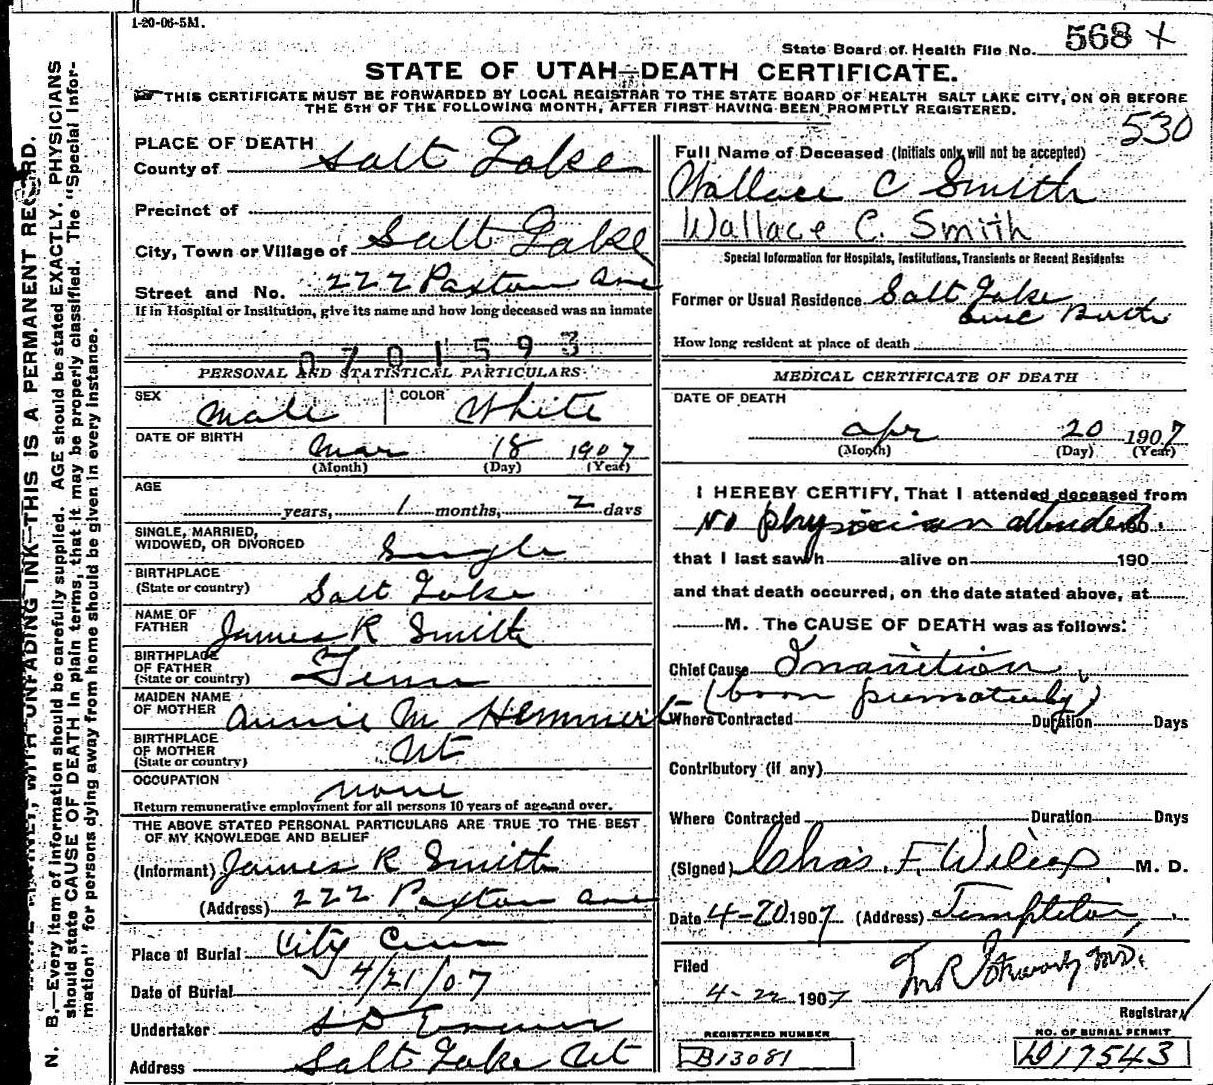 1-20-06-5M.
State Board of Health File No. 568 X
STATE OF UTAH—DEATH CERTIFICATE.
THIS CERTIFICATE MUST BE FORWARDED BY LOCAL REGISTRAR TO THE STATE BOARD OF HEALTH SALT LAKE CITY, ON OR BEFORE
THE 5TH OF THE FOLLOWING MONTH, AFTER FIRST HAVING BEEN PROMPTLY REGISTERED.
530
PLACE OF DEATH
County of Salt Lake
Precinct of
City, Town or Village of Salt Lake
Street and No. 222 Paxton Ave
If in Hospital or Institution, give its name and how long deceased was an inmate
0701593
PERSONAL AND STATISTICAL PARTICULARS
SEX Male COLOR White
DATE OF BIRTH Mar 18 1907
(Month) (Day) (Year)
AGE
years, 1 months, 2 days
SINGLE, MARRIED,
WIDOWED, OR DIVORCED Single
BIRTHPLACE
(State or country) Salt Lake
NAME OF
FATHER James R Smith
BIRTHPLACE
OF FATHER
(State or country) Tenn
MAIDEN NAME
OF MOTHER Annie M Hemmert
BIRTHPLACE
OF MOTHER
(State or country) Ut
OCCUPATION none
Return remunerative employment for all persons 10 years of age and over.
THE ABOVE STATED PERSONAL PARTICULARS ARE TRUE TO THE BEST
OF MY KNOWLEDGE AND BELIEF
(Informant) James R Smith
(Address) 222 Paxton Ave
Place of Burial City Cem
Date of Burial 4/21/07
Undertaker S D Evans
Address Salt Lake Ut
Full Name of Deceased (Initials only will not be accepted)
Wallace C Smith
Wallace C. Smith
Special Information for Hospitals, Institutions, Transients or Recent Residents:
Former or Usual Residence Salt Lake
since Birth
How long resident at place of death
MEDICAL CERTIFICATE OF DEATH
DATE OF DEATH
Apr 20 1907
(Month) (Day) (Year)
I HEREBY CERTIFY, That I attended deceased from
No physician attended. 190
that I last saw h alive on 190
and that death occurred, on the date stated above, at
M. The CAUSE OF DEATH was as follows:
Chief Cause Inanition
(born prematurely)
Where Contracted Duration Days
Contributory (if any)
Where Contracted Duration Days
(Signed) Chas. F. Wilcox M. D.
Date 4-20 1907 (Address) Templeton
Filed
4-22 1907
Registrar
REGISTERED NUMBER
B13081
NO. OF BURIAL PERMIT
D17543
RECORD.
WITH UNFADING INK—THIS IS A PERMANENT RECORD.
N. B.—Every item of information should be carefully supplied. AGE should be stated EXACTLY. PHYSICIANS
should state CAUSE OF DEATH in plain terms, that it may be properly classified. The "Special Infor-
mation" for persons dying away from home should be given in every instance.